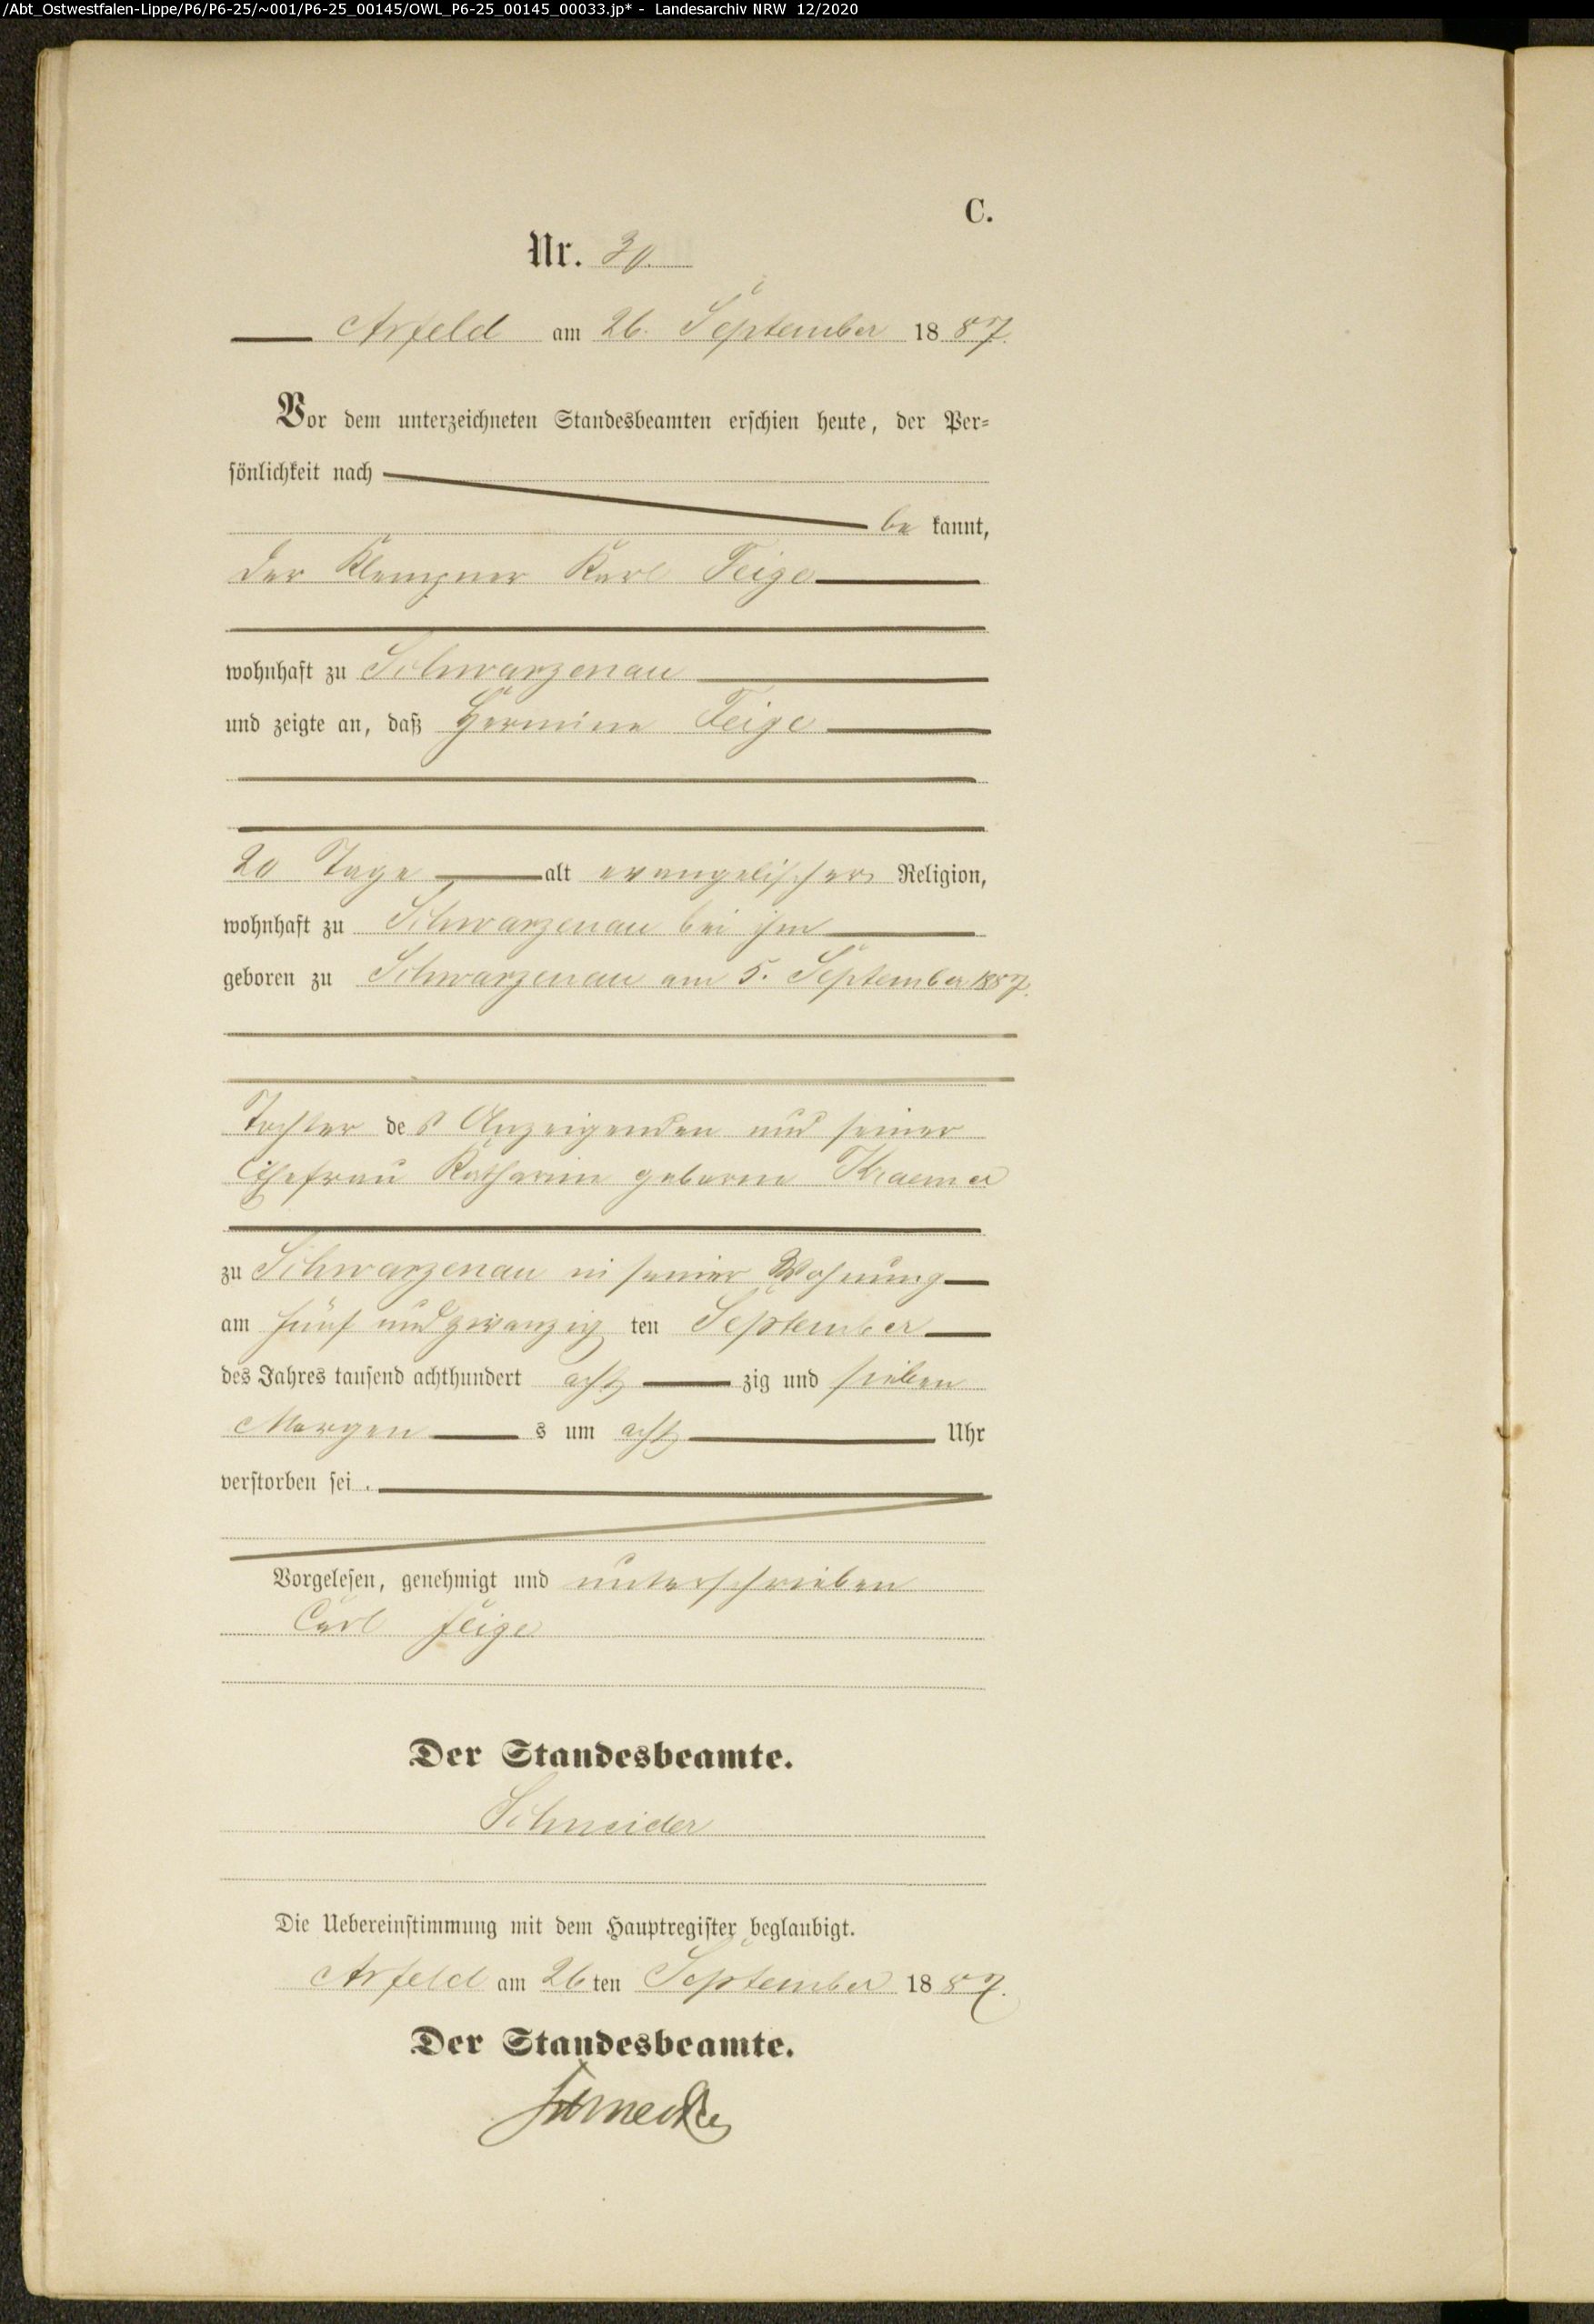 /Abt_Ostwestfalen-Lippe/P6/P6-25/~001/P6-25_00145/OWL_P6-25_00145_00033.jp* - Landesarchiv NRW 12/2020
C.
Nr. 30.
Arfeld am 26. September 1887.
Vor dem unterzeichneten Standesbeamten erschien heute, der Per-
sönlichkeit nach
be kannt,
der Klempner Karl Feige
wohnhaft zu Schwarzenau
und zeigte an, daß Hermine Feige
20 Tage alt evangelischer Religion,
wohnhaft zu Schwarzenau bei ihm
geboren zu Schwarzenau am 5. September 1887.
Tochter des Anzeigenden und seiner
Ehefrau Katharine geborne Kraemer
zu Schwarzenau in seiner Wohnung
am fünf und zwanzig ten September
des Jahres tausend achthundert acht zig und sieben
Morgen s um acht Uhr
verstorben sei.
Vorgelesen, genehmigt und unterschrieben
Carl Feige
Der Standesbeamte.
Schneider
Die Uebereinstimmung mit dem Hauptregister beglaubigt.
Arfeld am 26ten September 1887.
Der Standesbeamte.
Schneider